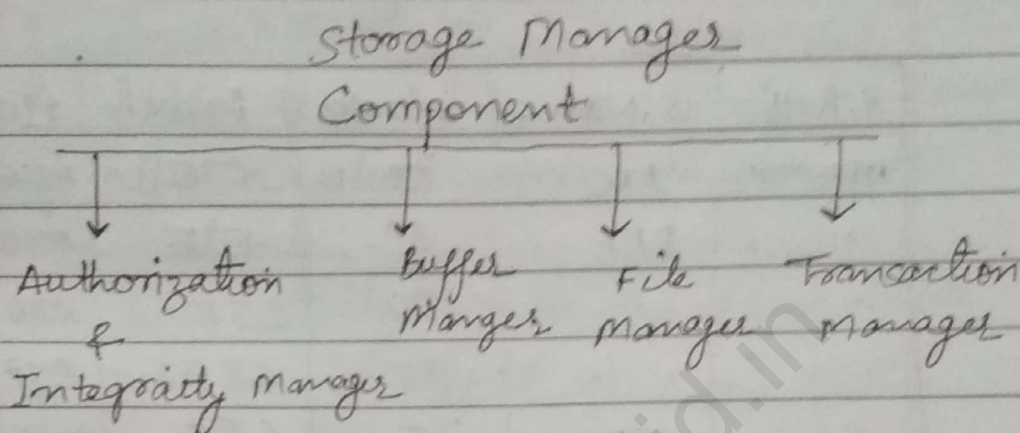 Storage Manager
Component
Authorization
&
Integraity Manager
Buffer
Manger
File
Manager
Transaction
Manager
id.in